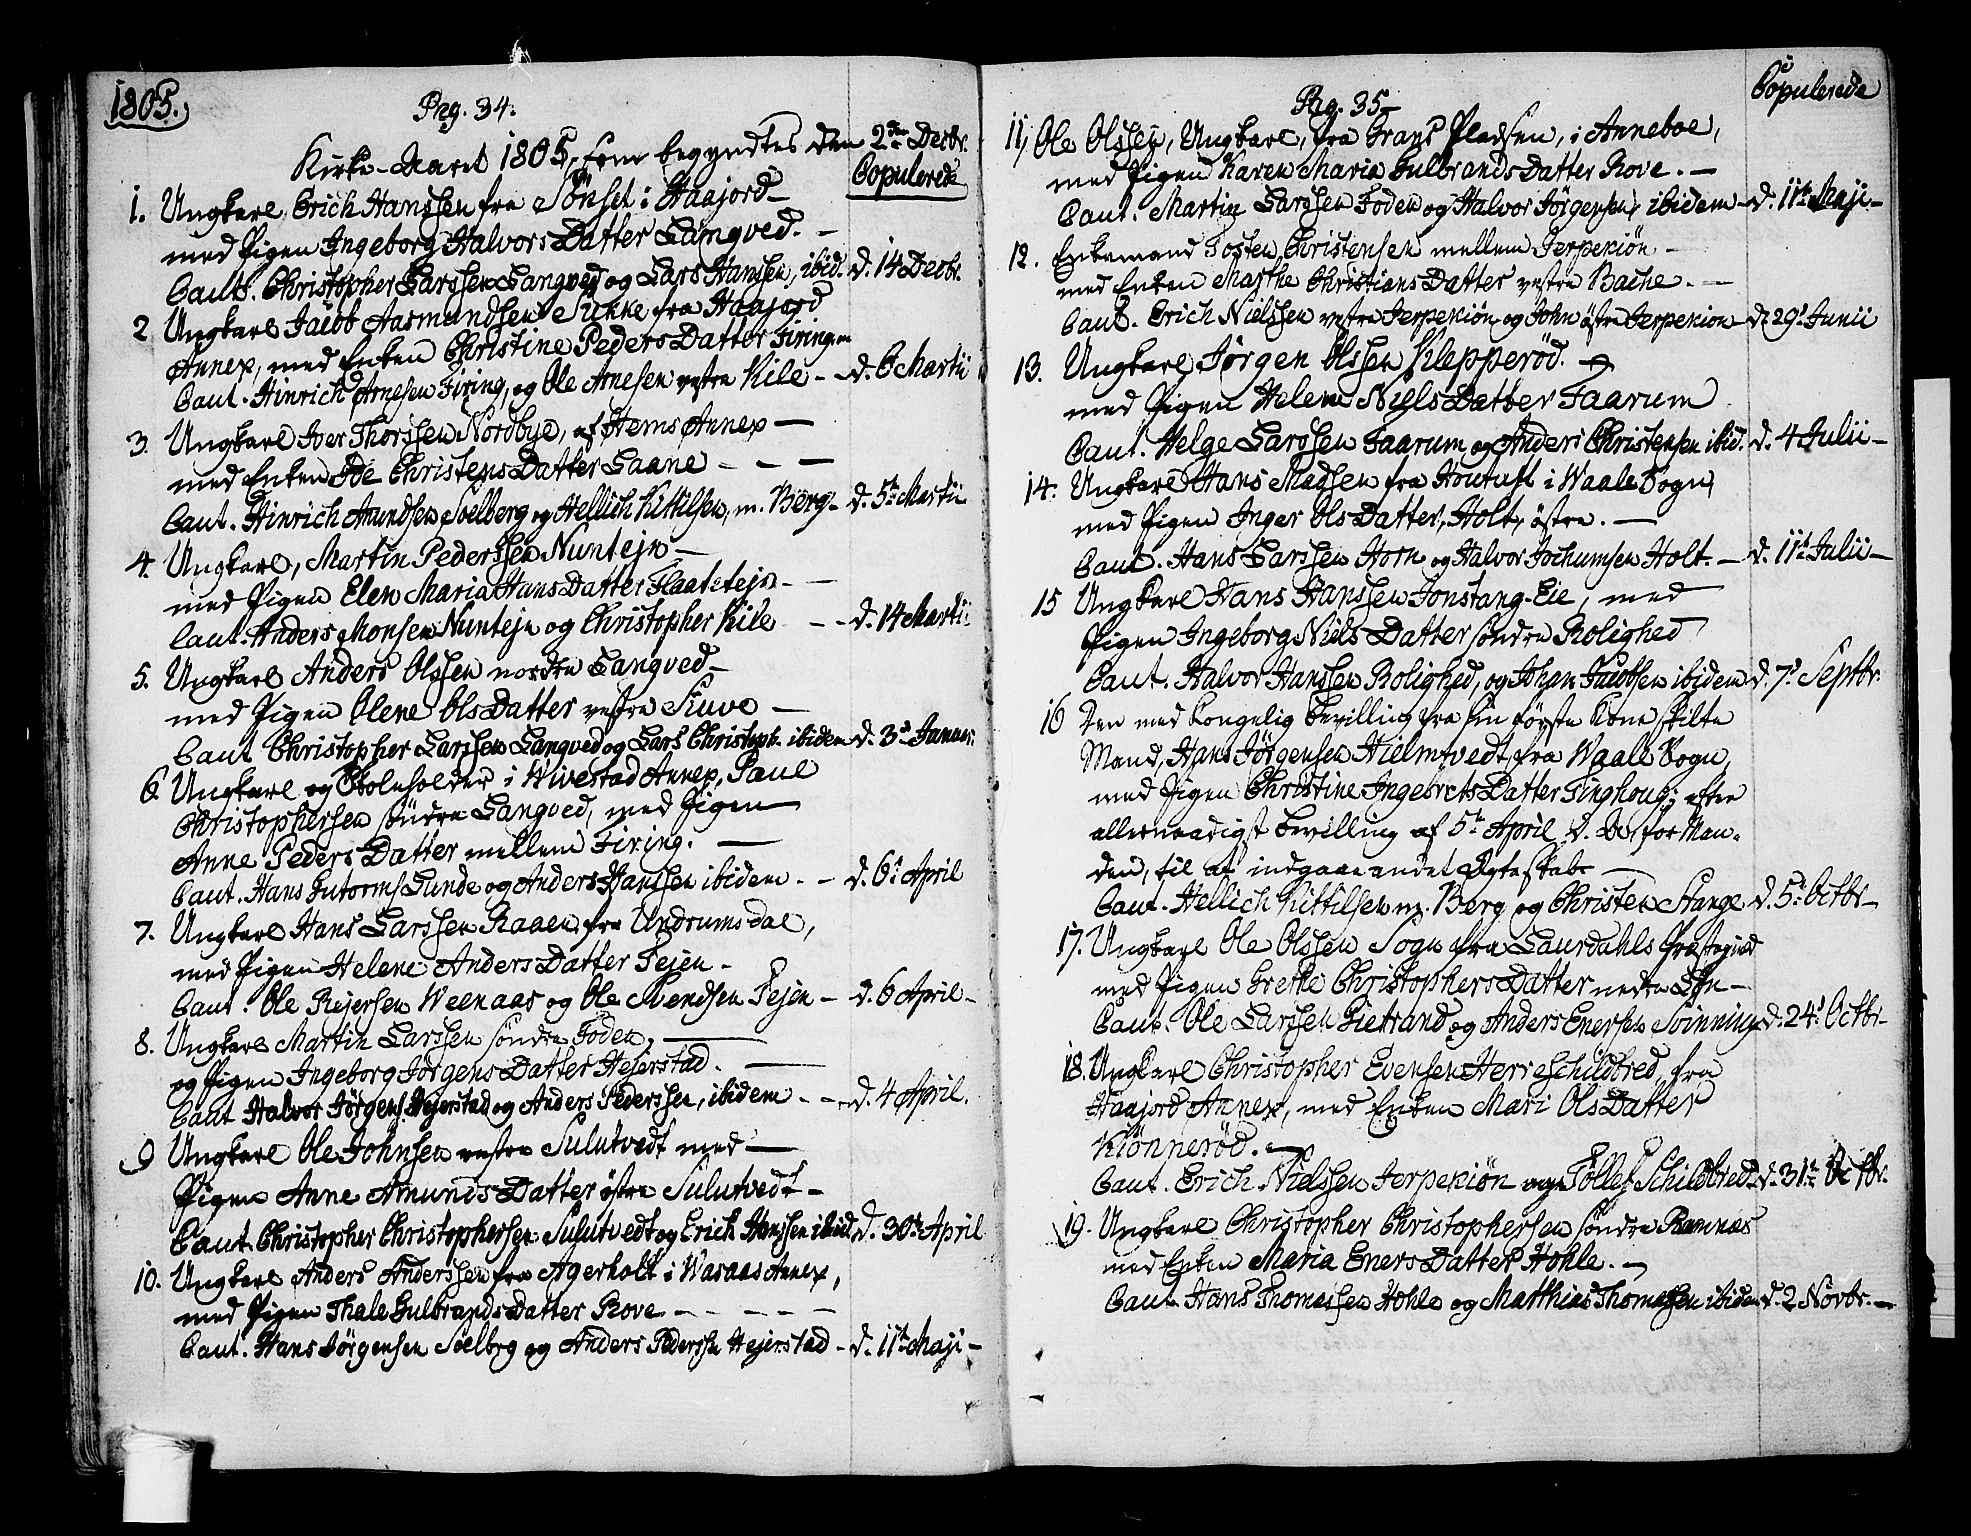 1805.
Pag. 34.
Kirke-Aaret 1805, som begyndtes den 2den Decbr.
Copulerede
1. Ungkarl Erich Hanssen fra Sönset i Haajord
med Pigen Ingeborg Halvors Datter Langved. –
Caut. Christopher Larssen Langved og Lars Hanssen, ibid. d. 14 Decbr.
2 Ungkarl Jacob Aasmundsen Sukke fra Haajord
Annex, med Enken Christine Peders Datter Firing
Caut. Hinrich Arnesen Firing, og Ole Arnesen vestre Kile – d. 6 Martii
3. Ungkarl Iver Thorssen Nordbye, af Hems Annex –
med Enken Christens Datter Laane – – –
Caut. Hinrich Amundsen Soelberg og Hellich Kittilsen, m. Berg – d. 5te Martii
4. Ungkarl, Martin Pederssen Nuntejn –
med Pigen Elen Maria Hans Datter Flaatetejn – –
Caut. Anders Monsen Nuntejn og Christopher Kile – – d. 14 Martii
5. Ungkarl Anders Olssen nordre Langved –
med Pigen Olene Ols Datter vestre Skuve –
Caut Christopher Larssen Langved og Lars Christoph. ibidem d. 3d Januar.
6. Ungkarl og Skoleholder i Wivestad Annex, Paul
Christophersen søndre Langved, med Pigen
Anne Peders Datter mellem Firing. –
Caut. Hans Gutorms Lunde og Anders Hanssen ibidem. – d. 6t April
7. Ungkarl Hans Larssen Raaen fra Undrumsdal,
med Pigen Helene Anders Datter Fejen –
Caut. Ole Rejersen Weenaas og Ole Svendsen Fejen – d. 6 April –
8. Ungkarl Martin Larssen söndre Foden, –
og Pigen Ingeborg Jörgens Datter Hejerstad. –
Caut Halvor Jörgens. Hejerstad og Anders Pederssen, ibidem – – d. 4 April.
9 Ungkarl Ole Johnsen vestre Sulutvedt med –
Pigen Anne Amunds Datter östre Sulutvedt –
Caut. Christopher Christophersen Sulutvedt og Erich Hanssen ibid. d. 30te April
10. Ungkarl Anders Anderssen fra Agerholt i Wasaas Annex,
med Pigen Thale Gulbrands Datter Rove – – – – –
Caut. Hans Jörgensen Soelbrg og Anders Pederssen Hejerstad – d. 11te Maji –
Pag. 35 –
Copulerede
11, Ole Olssen, Ungkarl, fra Grans Pladsen, i Anneboe,
med Pigen Karen Maria Gulbrands Datter Rove. –
Caut. Martin Larssen Foden og Halvor Jörgensen, ibidem – d. 11te Maji –
12. Enkemand Tosten Christensen mellem Jerpekiön –
med Enken Marthe Christians Datter vestre Bache. –
Caut. Erich Nielssen vestre Jerpekiön og John östre Jerpekion – d. 29d Junii
13. Ungkarl Jörgen Olssen Klepperöd. –
med Pigen Helene Niels Datter Faarum
Caut. Helge Larssen Faarum og Anders Christensen ibid. d. 4 Julii –
14. Ungkarl Hans Madsen fra Houtuft i Waale Sogn
med Pigen Inger Ols Datter, Holt, östre. –
Caut. Hans Larssen Horn og Halvor Jochumsen Holt. – d. 11te Julii –
15 Ungkarl Hans Hanssen Jonstang-Eie, med
Pigen Ingeborg Niels Datter söndre Rolighed
Caut. Halvor Hanssen Rolighed, og Johan Jacobsen ibidem d. 7d Septbr.
16 Den med kongelig Bevilling fra sin første Kone skilte
Mand, Hans Jörgensen Hielmtvedt, fra Waale Sogn,
med Pigen Christine Ingebrets Datter Tinghoug; efter
allernaadigst Bevilling af 5te April d. A. for Man-
den, til at indgaae andet Ægteskab –
Caut. Hellich Kittilsen m. Berg og Christen Stange d. 5te Octbr –
17. Ungkarl Ole Olssen Sogn fra Laurdahls Præstegield
med Pigen Grethe Christophers Datter nedre Lön –
Caut. Ole Larssen Gietrand og Anders Enersen Svinning d. 24d Octbr –
18. Ungkarl Christopher Evensen Herreschildbred, fra
Haajord Annex, med Enken Mari Ols Datter
Kiönneröd. –
Caut. Erich Nielssen Jerpekiön og Tollef Schildbred – d. 31te Octbr.
19. Ungkarl Christopher Christophersen söndre Ramnæs
med Enken Maria Eners Datter Hohle. –
Caut Hans Thomessen Hohle og Matthias Thomessen ibidem d. 2 Novbr. –